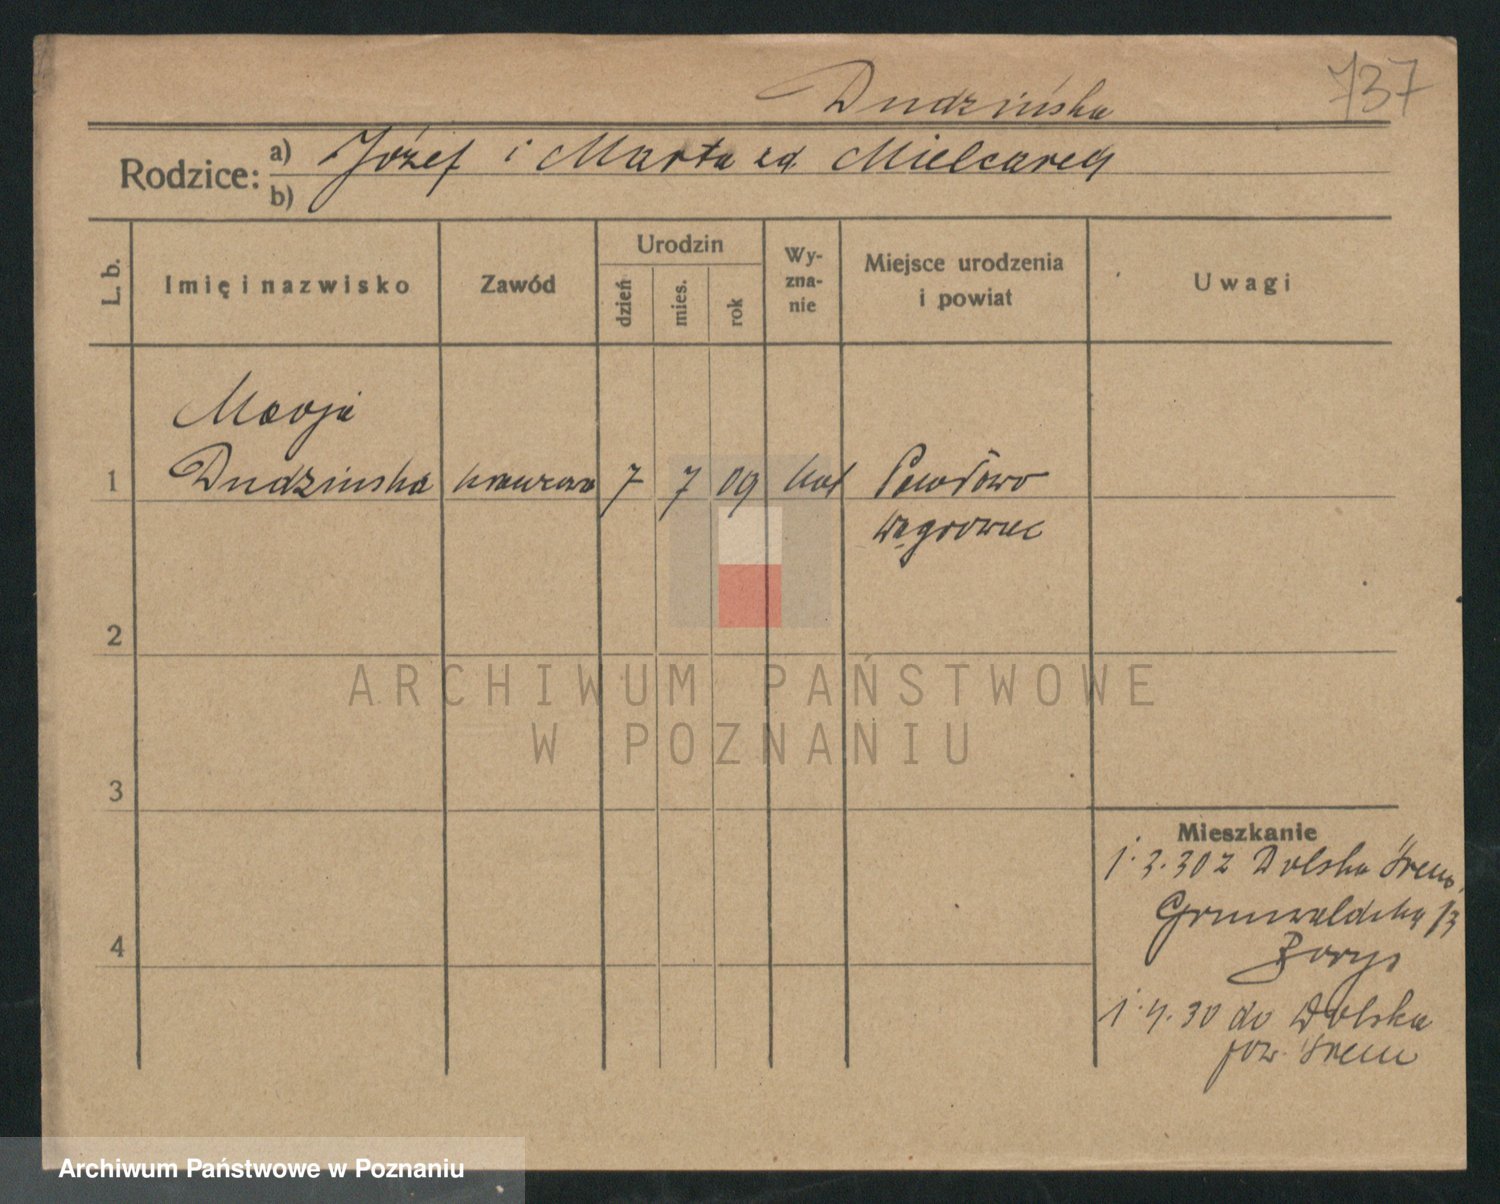 Dudzińska
737
Rodzice: a) Józef i Marta zd. Mielcarek
b)
L. b.
Imię i nazwisko
Zawód
Urodzin
dzień
mies.
rok
Wy-
zna-
nie
Miejsce urodzenia
i powiat
Uwagi
Marja
1 Dudzinska 7 7 09 kat Pawłowo
Wągrowiec
2
ARCHIWUM PAŃSTWOWE
W POZNANIU
3
Mieszkanie
1.3.30 z Dolska Śrem
Grunwaldzka
Borys
4
1.4.30 do Dolska
pow. Śrem
Archiwum Państwowe w Poznaniu